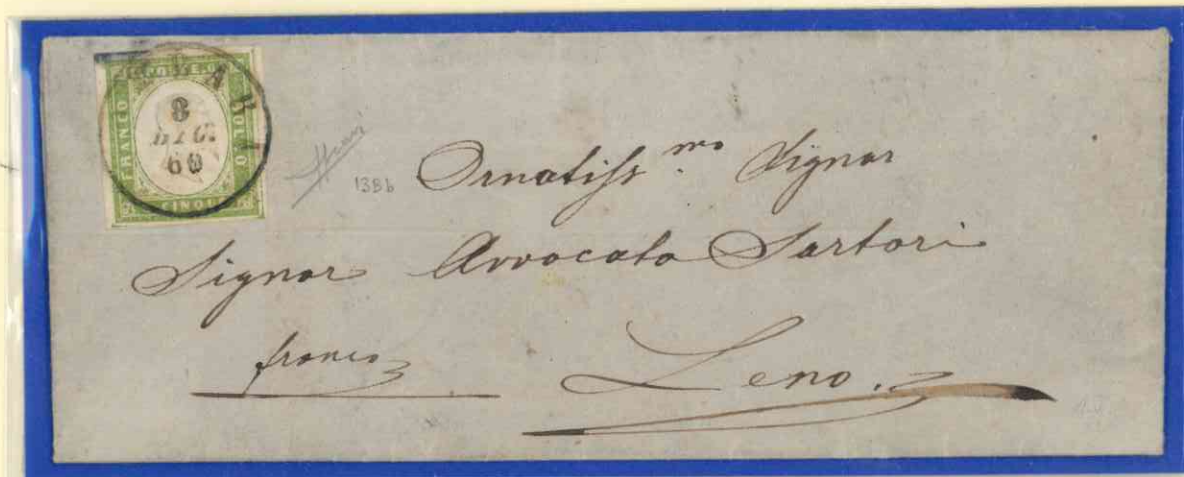 FRANCO
BOLLO
CINQUE
8
DIC.
60
13Bb
Ornatiss.mo Signor
Signor Avvocato Sartori
franco
Leno.